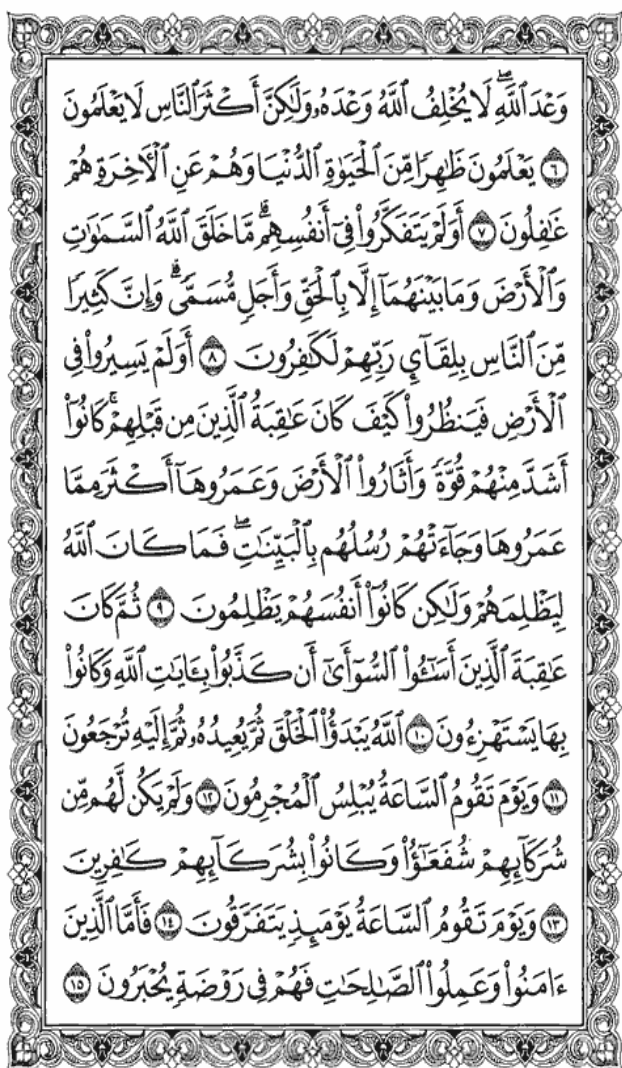 وَعْدَ ٱللَّهِۖ لَا يُخْلِفُ ٱللَّهُ وَعْدَهُۥ وَلَٰكِنَّ أَكْثَرَ ٱلنَّاسِ لَا يَعْلَمُونَ
٦ يَعْلَمُونَ ظَٰهِرًا مِّنَ ٱلْحَيَوٰةِ ٱلدُّنْيَا وَهُمْ عَنِ ٱلْءَاخِرَةِ هُمْ
غَٰفِلُونَ ٧ أَوَلَمْ يَتَفَكَّرُوا۟ فِىٓ أَنفُسِهِمۗ مَّا خَلَقَ ٱللَّهُ ٱلسَّمَٰوَٰتِ
وَٱلْأَرْضَ وَمَا بَيْنَهُمَآ إِلَّا بِٱلْحَقِّ وَأَجَلٍ مُّسَمًّىۗ وَإِنَّ كَثِيرًا
مِّنَ ٱلنَّاسِ بِلِقَآئِ رَبِّهِمْ لَكَٰفِرُونَ ٨ أَوَلَمْ يَسِيرُوا۟ فِى
ٱلْأَرْضِ فَيَنظُرُوا۟ كَيْفَ كَانَ عَٰقِبَةُ ٱلَّذِينَ مِن قَبْلِهِمْۚ كَانُوٓا۟
أَشَدَّ مِنْهُمْ قُوَّةً وَأَثَارُوا۟ ٱلْأَرْضَ وَعَمَرُوهَآ أَكْثَرَ مِمَّا
عَمَرُوهَا وَجَآءَتْهُمْ رُسُلُهُم بِٱلْبَيِّنَٰتِۖ فَمَا كَانَ ٱللَّهُ
لِيَظْلِمَهُمْ وَلَٰكِن كَانُوٓا۟ أَنفُسَهُمْ يَظْلِمُونَ ٩ ثُمَّ كَانَ
عَٰقِبَةَ ٱلَّذِينَ أَسَٰٓـُٔوا۟ ٱلسُّوٓأَىٰٓ أَن كَذَّبُوا۟ بِـَٔايَٰتِ ٱللَّهِ وَكَانُوا۟
بِهَا يَسْتَهْزِءُونَ ١٠ ٱللَّهُ يَبْدَؤُا۟ ٱلْخَلْقَ ثُمَّ يُعِيدُهُۥ ثُمَّ إِلَيْهِ تُرْجَعُونَ
١١ وَيَوْمَ تَقُومُ ٱلسَّاعَةُ يُبْلِسُ ٱلْمُجْرِمُونَ ١٢ وَلَمْ يَكُن لَّهُم مِّن
شُرَكَآئِهِمْ شُفَعَٰٓؤُا۟ وَكَانُوا۟ بِشُرَكَآئِهِمْ كَٰفِرِينَ
١٣ وَيَوْمَ تَقُومُ ٱلسَّاعَةُ يَوْمَئِذٍ يَتَفَرَّقُونَ ١٤ فَأَمَّا ٱلَّذِينَ
ءَامَنُوا۟ وَعَمِلُوا۟ ٱلصَّٰلِحَٰتِ فَهُمْ فِى رَوْضَةٍ يُحْبَرُونَ ١٥